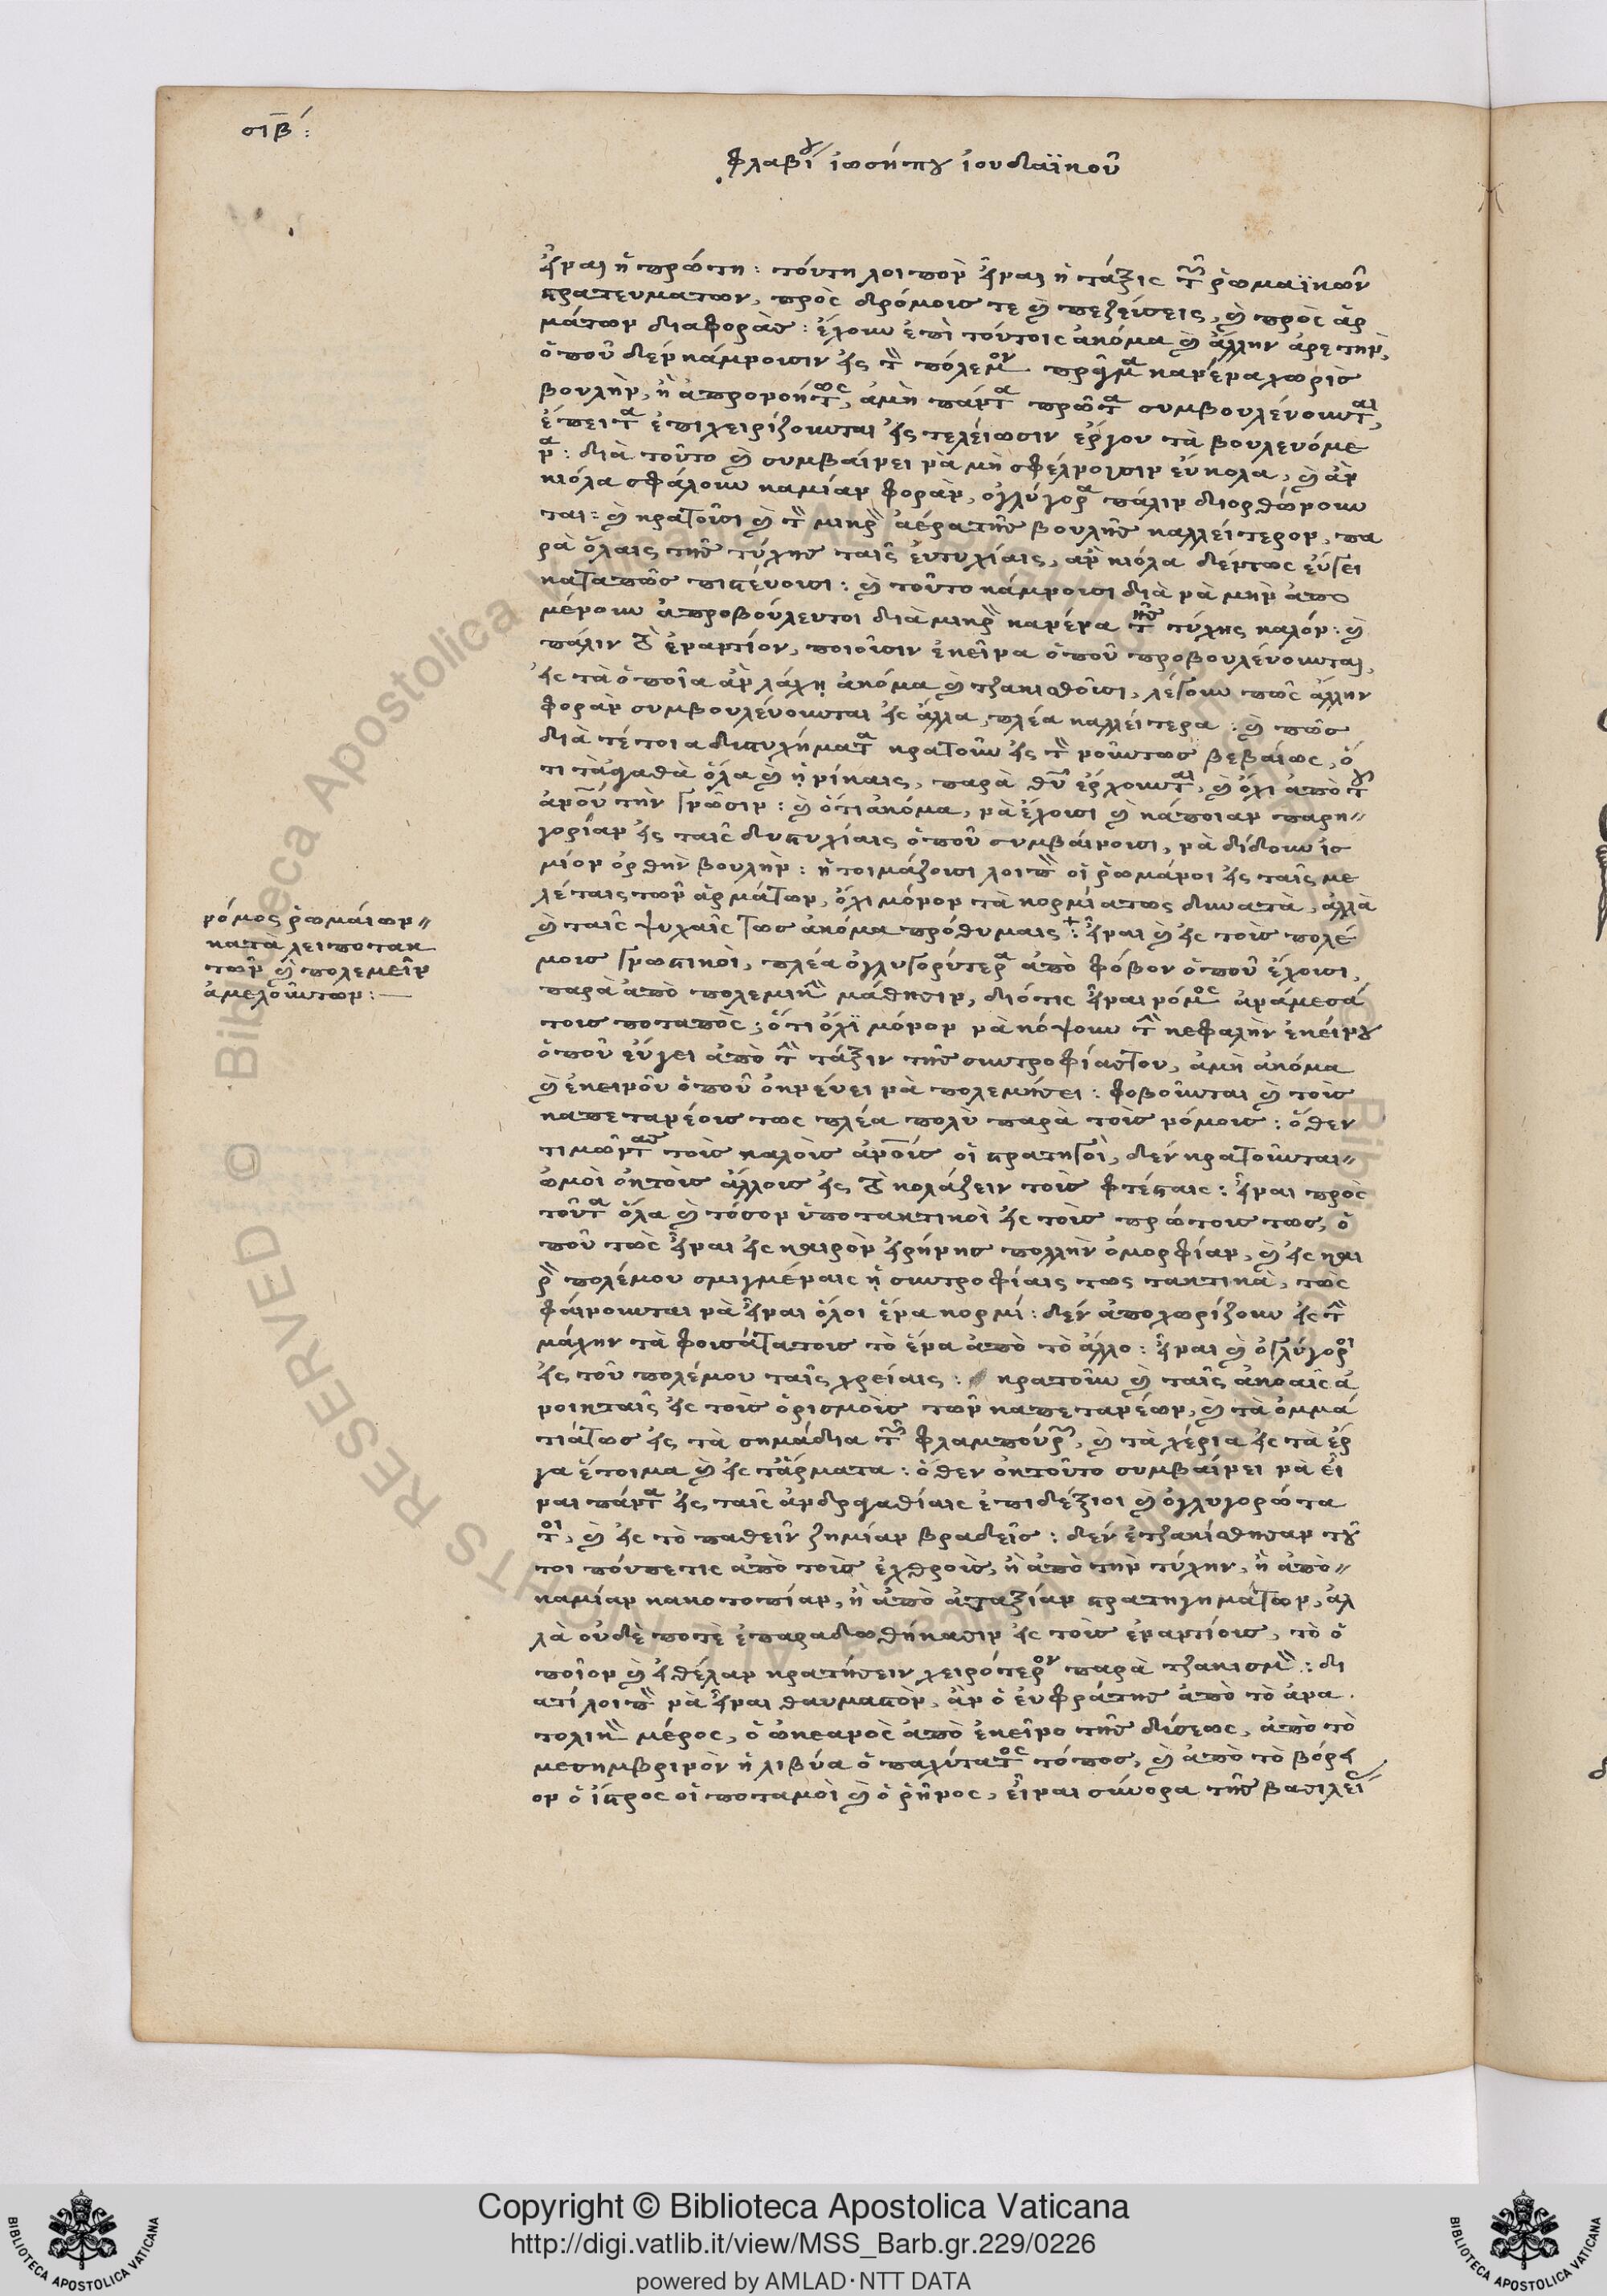 σιβ´:
Φλαβίου ἰωσήπου ἰουδαϊκοῦ
εἶναι ἡ πρώτη: τούτη λοιπὸν εἶναι ἡ τάξις τῶν ῥωμαϊκῶν
στρατευματων, πρὸς δρόμους τε καὶ πεζεύσεις, καὶ πρὸς ἁρ
μάτων διαφοράς: ἔχουν ἐπὶ τούτοις ἀκόμα καὶ ἄλλην ἀρετὴν,
ὁποῦ δὲν κάμνουσιν εἰς τὸν πόλεμον πρᾶγμα κανένα χωρὶς
βουλὴν, ἢ ἀπρονοήτως, ἀμὴ πάντα πρῶτα συμβουλεύουνται,
ἔπειτα ἐπιχειρίζουνται εἰς τελείωσιν ἔργου τὰ βουλευόμε
να: διὰ τοῦτο καὶ συμβαίνει νὰ μὴ σφέλνουσιν εὔκολα, καὶ ἂν
κιόλα σφάλουν καμίαν φορὰν, ὀγλύγορα πάλιν διορθώνουν
ται: καὶ κρατοῦσι καὶ τὸν μικρὸν ἀέρα τῆς βουλῆς καλλείτερον, πα
ρὰ ὅλαις τῆς τύχης ταῖς εὐτυχίαις, ἂν κιόλα δέντως εὔγει
καταπῶς πιστεύουσι: καὶ τοῦτο κάμνουσι διὰ νὰ μὴν ἀπο
μένουν ἀπροβούλευτοι διὰ μικρὸν κανένα τῆς τύχης καλόν: καὶ
πάλιν τὸ ἐναντίον, ποιοῦσιν ἐκεῖνα ὁποῦ προβουλεύουνται,
εἰς τὰ ὁποῖα ἂν λάχῃ ἀκόμα καὶ τζακισθοῦσι, λέγουν πῶς ἄλλην
φορὰν συμβουλεύουνται εἰς ἄλλα πλέα καλλείτερα: καὶ πῶς
διὰ τέτοια δυστυχήματα κρατοῦν εἰς τὸν νοῦντως βεβαίως, ὅ
τι τἀγαθὰ ὅλα καὶ ᾑ νίκαις, παρὰ θεοῦ ἔρχουνται, καὶ ὄχι ἀπὸ τοῦ
ἀνοῦ τὴν γνῶσιν: καὶ ὅτι ἀκόμα, νὰ ἔχουσι καὶ κάποιαν παρη-
γορίαν εἰς ταῖς δυστυχίαις ὁποῦ συμβαίνουσι, νὰ δίδουν ἰσ
μίον ὀρθὴν βουλὴν: ἡτοιμάζουσι λοιπὸν οἱ ῥωμάνοι εἰς ταῖς με
λέταις τῶν ἁρμάτων, ὄχι μόνον τὰ κορμία τως δυνατὰ, ἀλλὰ
καὶ ταῖς ψυχαῖς τως ἀκόμα πρόθυμαις +: εἶναι καὶ εἰς τοὺς πολέ
μους γνωστικοὶ, πλέα ὀγλυγορύτερα ἀπὸ φόβον ὁποῦ ἔχουσι,
παρὰ ἀπὸ πολεμικὴν μάθησιν, διότις εἶναι νόμος ἀνάμεσά
τους ποταπὸς: ὅτι ὄχι μόνον νὰ κόψουν τὴν κεφαλὴν ἐκείνου
ὁποῦ εὔγει ἀπὸ τὴν τάξιν τῆς συντροφίας του, ἀμὴ ἀκόμα
καὶ ἐκεινοῦ ὁποῦ ὀκνεύει νὰ πολεμήσει: φοβοῦνται καὶ τοὺς
καπετανέους τως πλέα πολὺ παρὰ τοὺς νόμους: ὅθεν
τιμῶντας τοὺς καλοὺς ἀνοὺς οἱ στρατηγοὶ, δὲν κρατοῦνται-
ὠμοὶ ὀκ τοὺς ἄλλους εἰς τὸ κολάζειν τοὺς φτέσταις: εἶναι πρὸς
τοῦτα ὅλα καὶ τόσον ὑποτακτικοὶ εἰς τοὺς πρώτους τως, ὁ
ποῦ τὼς εἶναι εἰς καιρὸν εἰρήνης πολλὴν ὀμορφίαν, καὶ εἰς και
ρὸν πολέμου σμιγμέναις ᾑ συντροφίαις τως τακτικὰ, τὼς
φαίνουνται νὰ εἶναι ὅλοι ἕνα κορμί: δὲν ἀποχωρίζουν εἰς τὴν
μάχην τὰ φουσάτα τους τὸ ἕνα ἀπὸ τὸ ἄλλο: εἶναι καὶ ὀγλύγοροι
εἰς τοῦ πολέμου ταῖς χρείαις: κρατοῦν καὶ ταῖς ἀκοαῖς ἀ
νοικταῖς εἰς τοὺς ὁρισμοὺς τῶν καπετανέων, καὶ τὰ ὀμμά
τιά τως εἰς τὰ σημάδια τῶν φλαμπούρων, καὶ τὰ χέρια εἰς τὰ ἔρ
γα ἕτοιμα καὶ εἰς τἄρματα: ὅθεν ὀκ τοῦτο συμβαίνει νὰ εἶ
ναι πάντα εἰς ταῖς ἀνδραγαθίαις ἐπιδέξιοι καὶ ὀγλυγορώτα
τοι, καὶ εἰς τὸ παθεῖν ζημίαν βραδεῖς: δὲν ἐτζακίσθησαν τοῦ
τοι πόυπετις ἀπὸ τοὺς ἐχθροὺς, ἢ ἀπὸ τὴν τύχην, ἢ ἀπὸ-
καμίαν κακοτοπίαν, ἢ ἀπὸ ἀταξίαν στρατηγημάτων, ἀλ
λὰ οὐδὲ ποτὲ ἐπαραδωθήκασιν εἰς τοὺς ἐναντίους, τὸ ὁ
ποῖον καὶ εἰθέλαν κρατήσειν χειρότερον παρὰ τζακισμὸν: δι
ατί λοιπὸν νὰ εἶναι θαυμαστὸν, ἂν ὁ εὐφράτης ἀπὸ τὸ ἀνα
τολικὸν μέρος, ὁ ὠκεανὸς ἀπὸ ἐκεῖνο τῆς δύσεως, ἀπὸ τὸ
μεσημβρινὸν ἡ λιβύα ὁ παχύτατος τόπος, καὶ ἀπὸ τὸ βόρει
ον ὁ ἴστρος οἱ ποταμοὶ καὶ ὁ ῥῆνος, εἶναι σύνορα τῆς βασιλεί
νόμος ῥωμαίων-
κατὰ λειποτακ
τῶν καὶ πολεμεῖν
ἀμελούντων:—
Copyright © Biblioteca Apostolica Vaticana
http://digi.vatlib.it/view/MSS_Barb.gr.229/0226
powered by AMLAD·NTT DATA
BIBLIOTECA APOSTOLICA VATICANA
BIBLIOTECA APOSTOLICA VATICANA